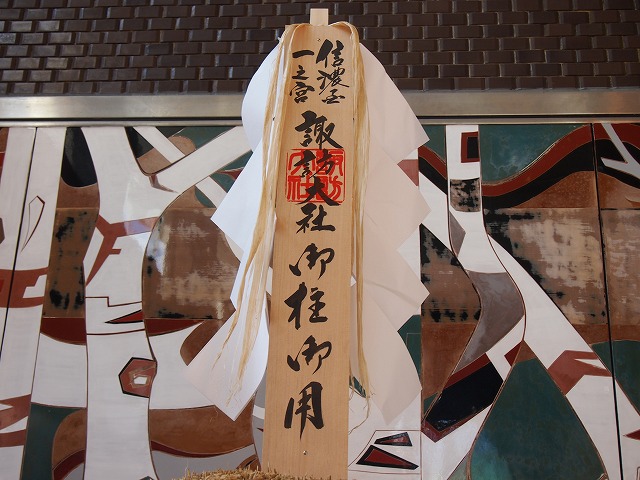 信濃国
一之宮
諏訪大社御柱御用